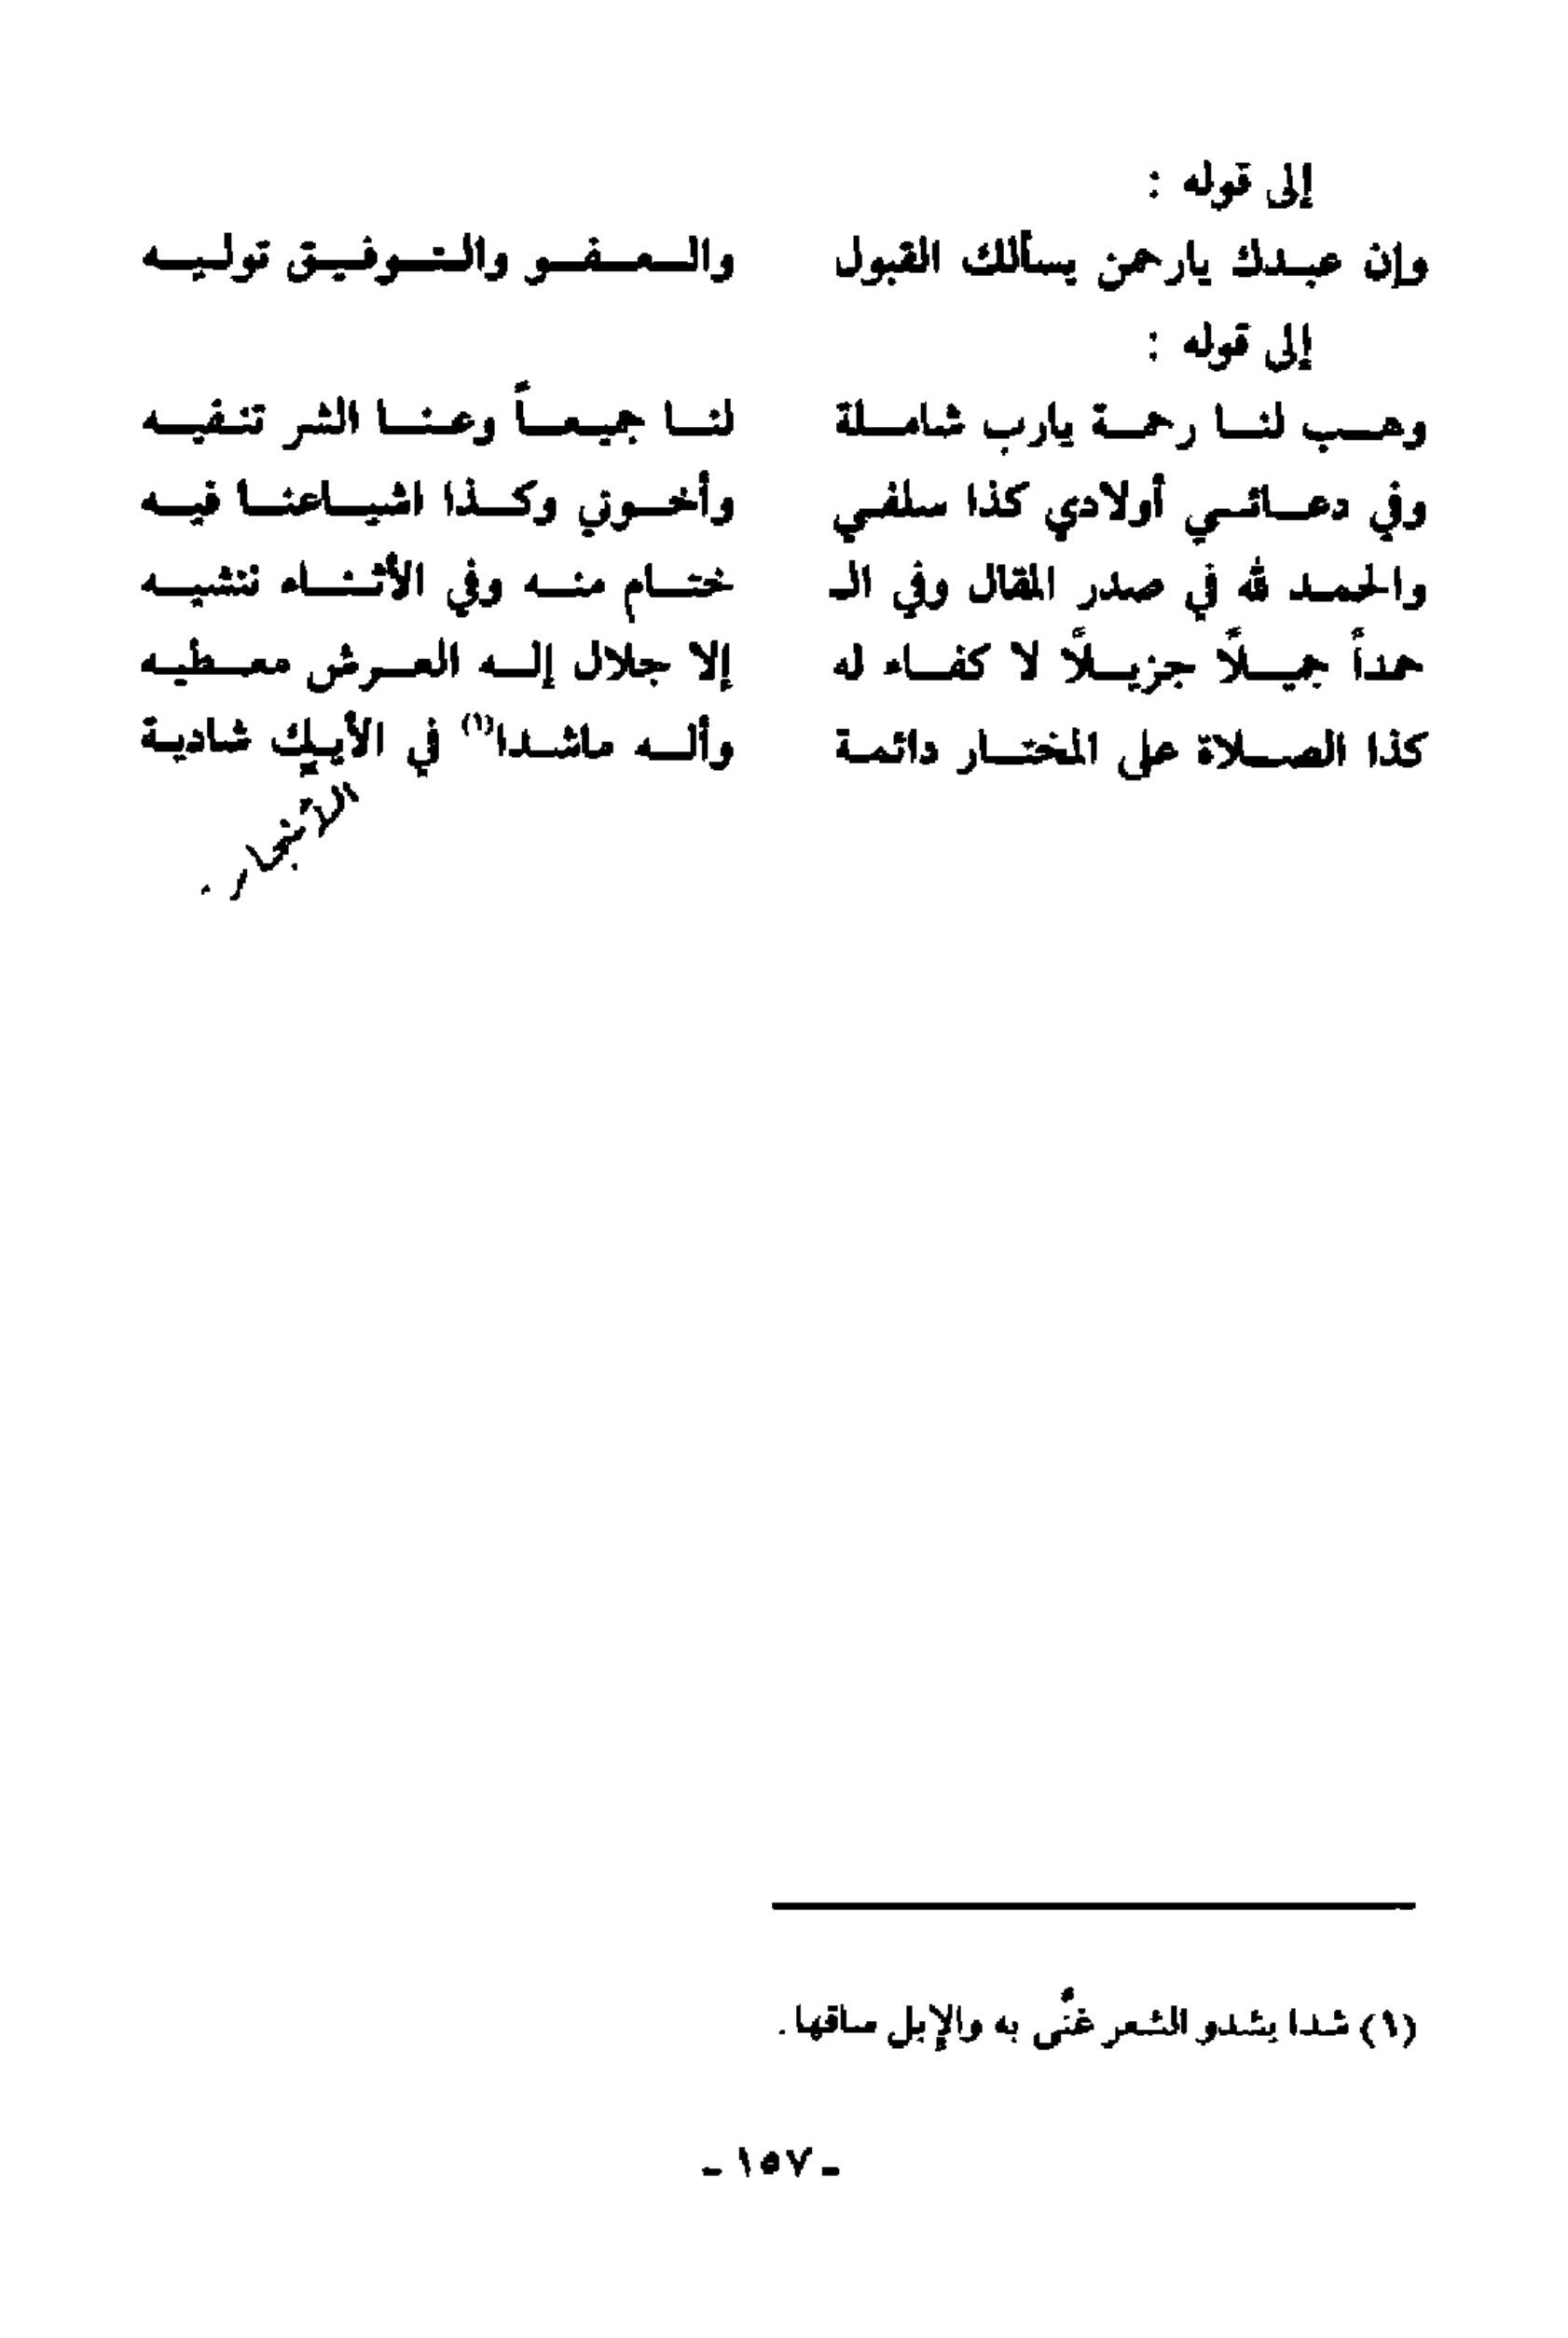 إلى قوله :
وإن عبدك يارحمن يسألك القبول والعفو والتوفيق توليه
إلى قوله :
وهب لنا رحمة يارب شاملة لنا جميعاً وعنا الشر تنفيه
وفي دعائي أولادي كذا سلفي وأخوتي وكذا اشياعنا فيه
والحمد لله في صدر المقال وفي الـ ختام منه وفي الأثناء نثنيه
حمداً جميلاً جزيلاً لا كفاء له إلا جلال إله العرش معطيه
كذا الصلاة على المختار دائمة وأله ماشدا(١) في الأيك شادية
(١) شدا يشدو الشعر غنَّى به والإبل ساقها .
- ١٥٧ -